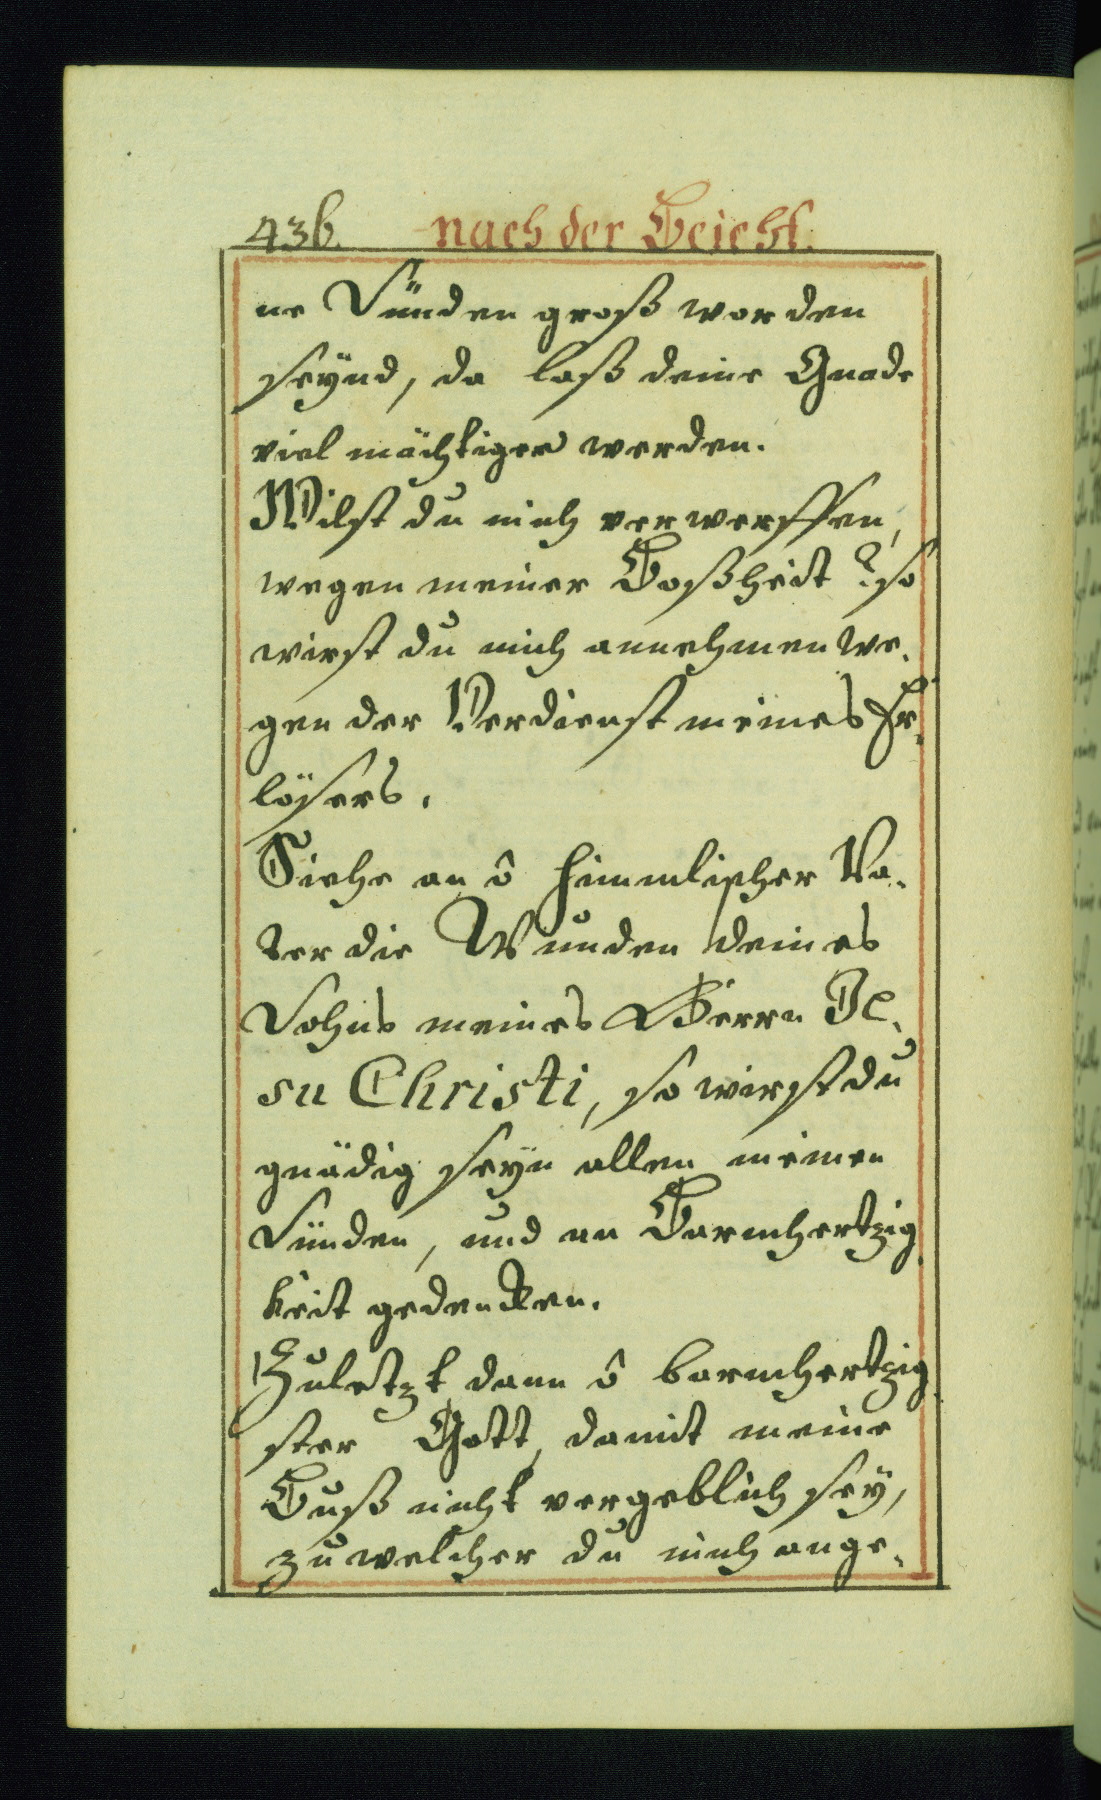 436. nach der Beicht.
ne Sünden groß worden
seÿnd, da laß deine Gnade
viel mächtiger werden.
Wilst du mich verwerffen,
wegen meiner Boßheit? so
wirst du mich annehmen we-
gen der Verdienst meines Er-
lösers.
Siehe an ô himmlischer Va-
ter die Wunden deines
Sohns meines Herrn Je-
su Christi, so wirst du
gnädig seÿn allen meinen
Sünden, und an Barmhertzig-
keit gedencken.
Zuletzt dann ô barmhertzig-
ster Gott, damit meine
Buß nicht vergeblich seÿ,
zu welcher du mich ange-